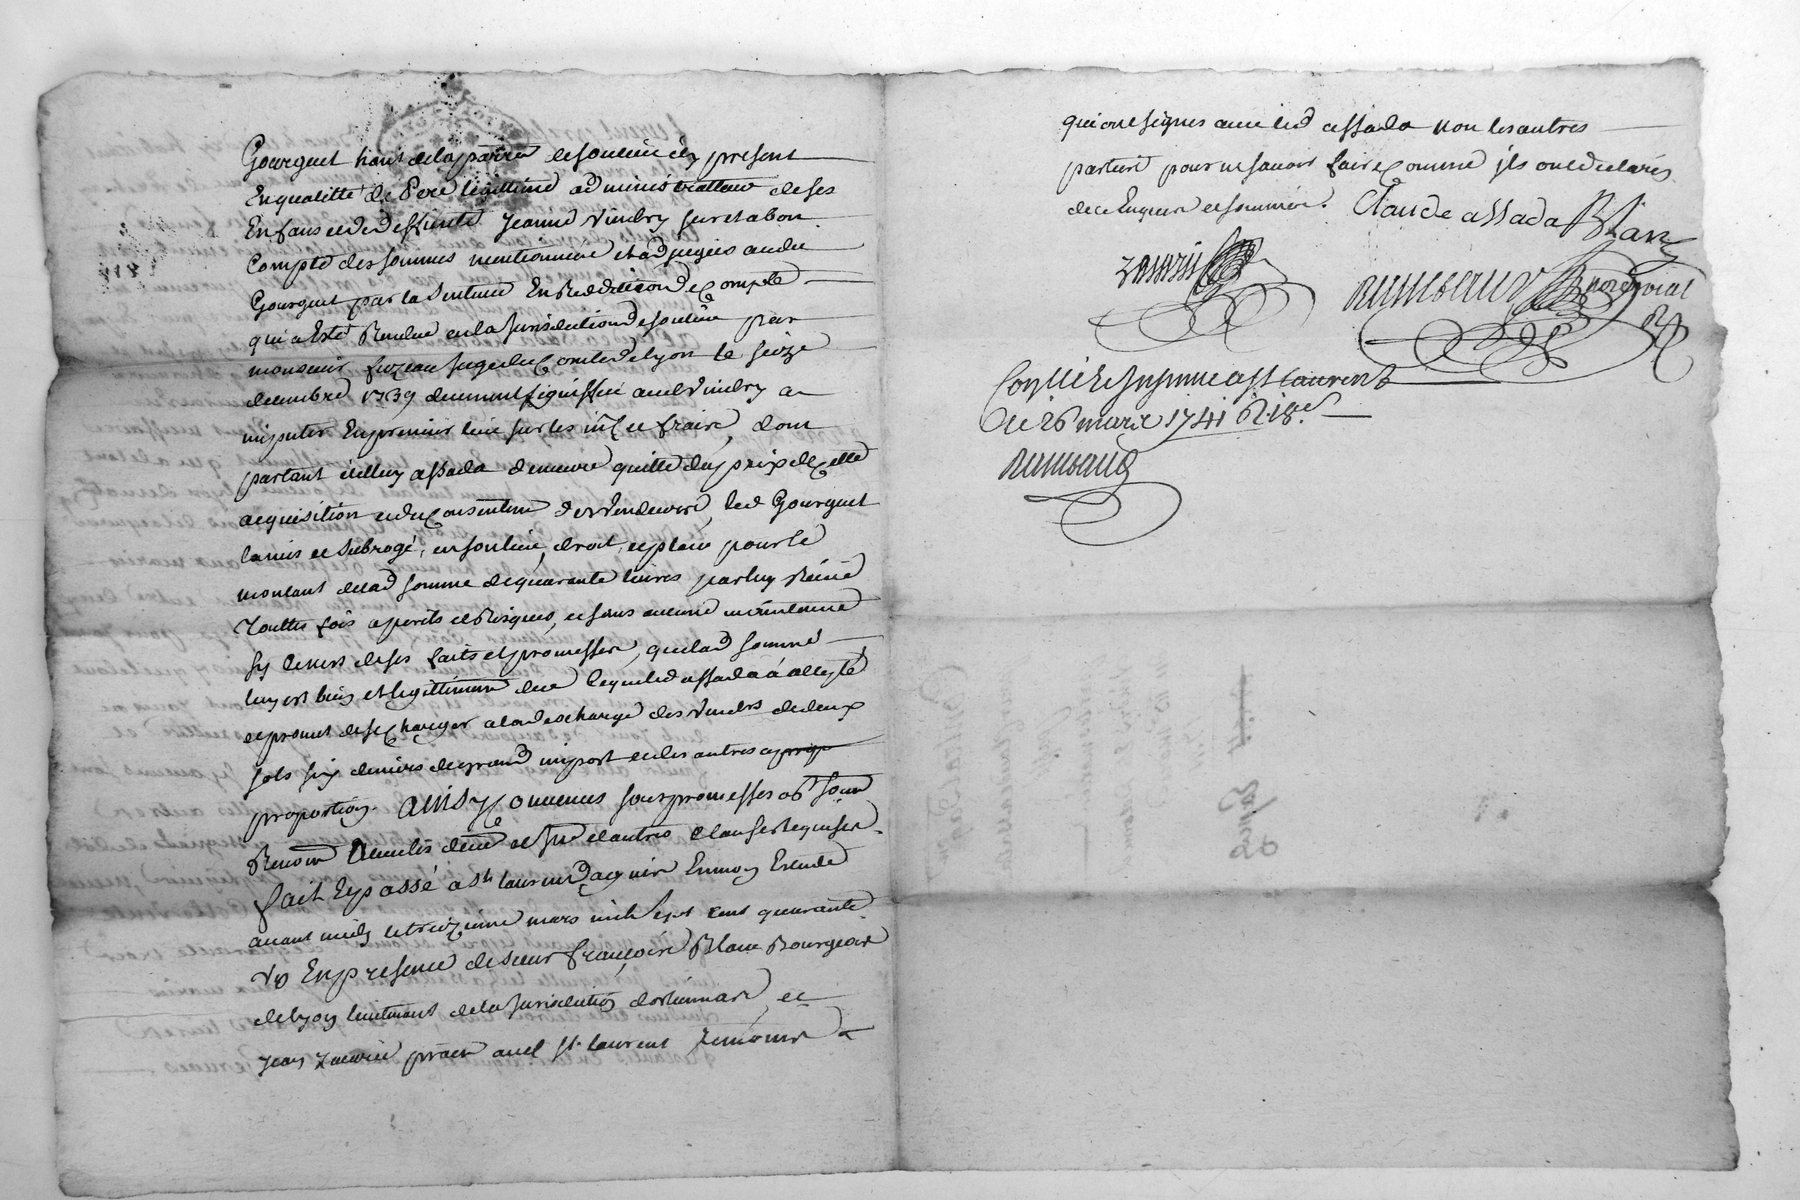 Gourguet hant de la parr. de fouliere icy present
En qualitté de Pere legittime administratteur de ses
Enfans et de deffunte Jeanne Vindry sur et a bon
Compte des sommes mentionnées et adjugées audit
Gourguet par la Sentence En Reddition de Compte
qui a Esté Rendue en la Jurisdiction de
monsieur juge du Comté de Lyon le seize
decembre 1739 deument signiffiée aud Vindry a
imputer En premier lieu sur les int. et frais, dont
partant icelluy assada demeure quitte du prix de Cette
acquisition et du Consentem des Vendeurs, led Gourguet
la mis et Subrogé, en son lieu, droit, et place pour le
montant de lad somme de quarante livres par luy Receüe
Touttes fois a perils et Risques, et sans aucune maintenue
sy ce n'est de ses faits et promesses, que lad somme
luy est bien et legittimem deue lequel led assada a accepté
et promet de se Charger a la descharge des Vendrs de deux
sols six deniers de grand import et des autres a prop
proportion. Ainsy Convenus sous promesses obon soum
Renon Clauses Requises
fait Et passé a St laurens dagnin En mon Estude
avant midy le treizieme mars mil sept cent quarante
Vn En presence de sieur françois Blanc Bourgeois
de Lyon lieutenant de la Jurisdiction et
Jean Zacarie praen aud St laurent Temoins
qui ont signés avec led assada non les autres
parties pour ne savoir faire Comme ils ont declarés
de ce Enquis et sommés. Claude assada Blanc
Zacarie Rimbaud
Con[tr]lé Et Insinué a St laurent
le 26 mars 1741
Rimbaud